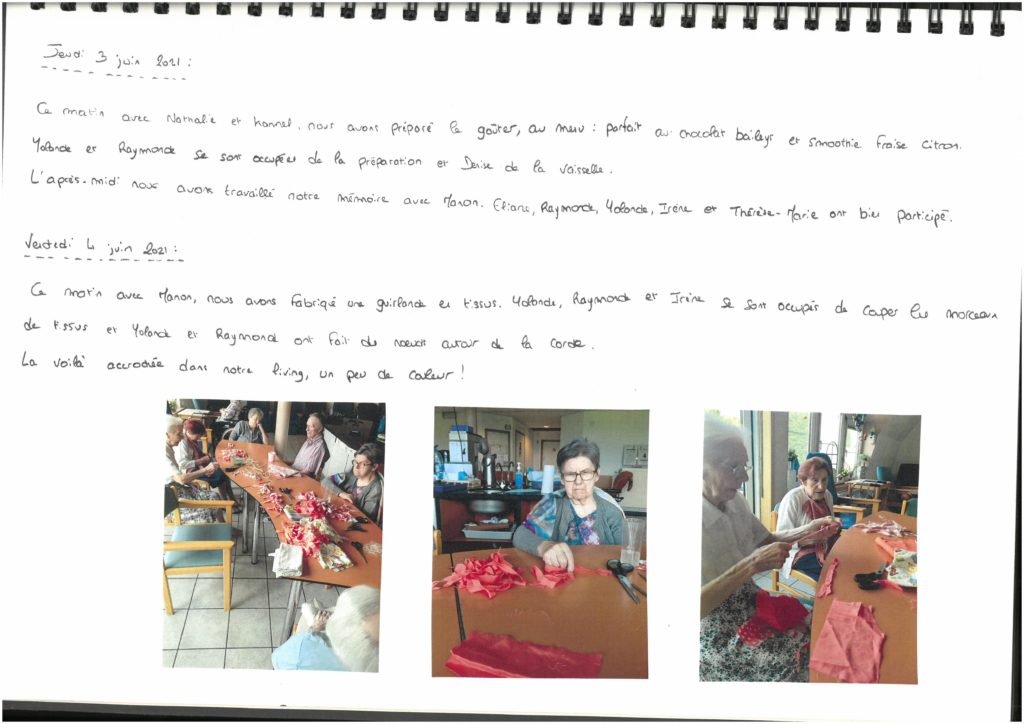 Jeudi 3 juin 2021 :
Ce matin avec Nathalie et , nous avons préparé le goûter, au menu : parfait au chocolat baileys et smoothie fraise citron.
Yolande et Raymonde se sont occupées de la préparation et Denise de la vaisselle.
L'après-midi nous avons travaillé notre mémoire avec Manon. Eliane, Raymonde, Yolande, Irène et Thérèse-Marie ont bien participé.
Vendredi 4 juin 2021 :
Ce matin avec Manon, nous avons fabriqué une guirlande en tissus. Yolande, Raymonde et Irène se sont occupés de couper les morceaux
de tissus et Yolande et Raymond ont fait des noeuds autour de la corde.
La voilà accrochée dans notre living, un peu de couleur !